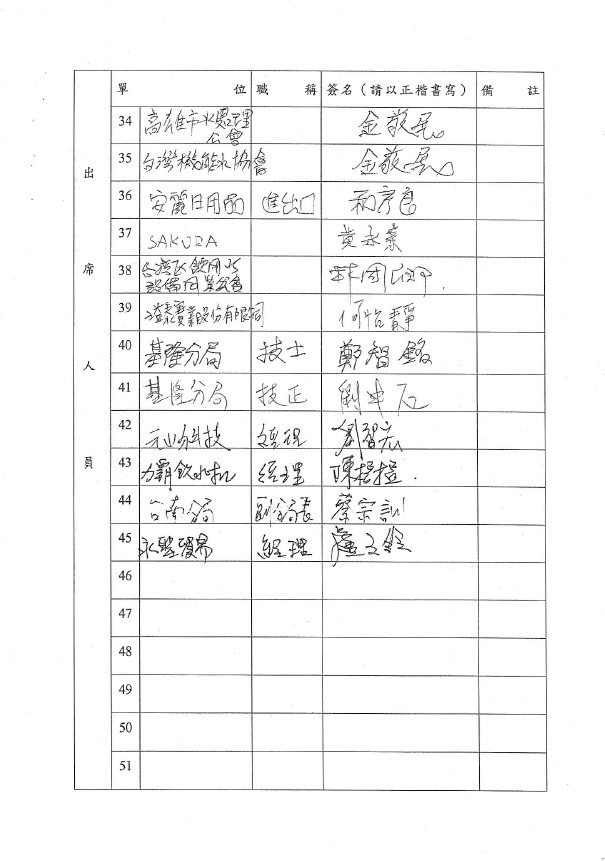 單位 職稱 簽名（請以正楷書寫） 備註
出席人員
34 高雄市水處理
公會 金敬
35 台灣機能水協會 金敬
36 安麗日用品 進出口
37 SAKURA 黃永
38 台灣區飲用水
設備同業公會
39 實業股份有限公司 何怡靜
40 基隆分局 技士 鄭智銘
41 基隆分局 技正 劉
42 元山科技 經理 劉智宏
43 力霸飲水机 經理 陳
44 台南分局 副分局長 蔡宗訓
45 貿易 經理 盧
46
47
48
49
50
51